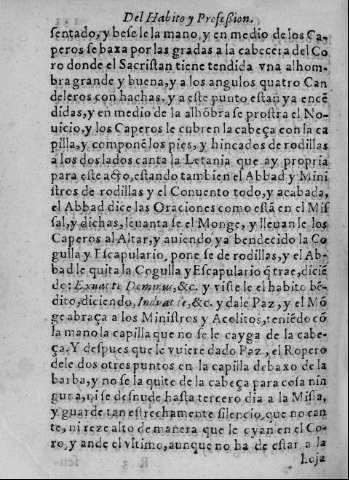 Del Habito y Profession.
sentado, y bese le la mano, y en medio de los Ca-
peros se baxa por las gradas a la cabecera del Co
ro donde el Sacristan tiene tendida vna alhom-
bra grande y buena, y a los angulos quatro Can
deleros con hachas, y a este punto estan ya encē
didas, y en medio de la alhōbra se prostra el No-
uicio, y los Caperos le cubren la cabeça con la ca
pilla, y componēle los pies, y hincados de rodillas
a los dos lados canta la Letania que ay propria
para este acto, estando tambien el Abbad y Mini
stros de rodillas y el Conuento todo, y acabada,
el Abbad dice las Oraciones como estā en el Mis
sal, y dichas, leuanta se el Monge, y lleuan le los
Caperos al Altar, y auiendo ya bendecido la Co
gulla y Escapulario, pone se de rodillas, y el Ab-
bad le quita la Cogulla y Escapulario q̄ trae, diciē
do: Exuat te Dominus, &c. y viste le el habito bē-
dito, diciendo, Induat te, &c. y dale Paz, y el Mō
ge abraça a los Ministros y Acolitos, teniēdo cō
la mano la capilla que no se le cayga de la cabe-
ça. Y despues que le vuiere dado Paz, el Ropero
dele dos otres puntos en la capilla debaxo de la
barba, y no se la quite de la cabeça para cosa nin
guna, ni se desnude hasta tercero dia a la Missa,
y guarde tan estrechamente silencio, que no can
te, ni reze alto de manera que le oyan en el Co-
ro, y ande el vltimo, aunque no ha de estar a la
Loja